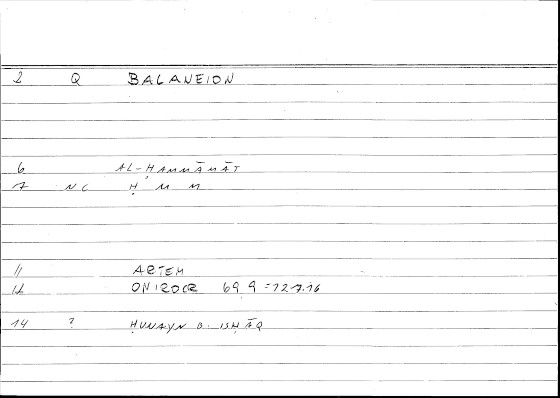 2 Q BALANEION
6 AL-ḤAMMĀMĀT
7 NC Ḥ M M
11 ARTEM
12 ONIROCR 69.9 = 127.16
14 ? ḤUNAYN B. ISḤĀQ